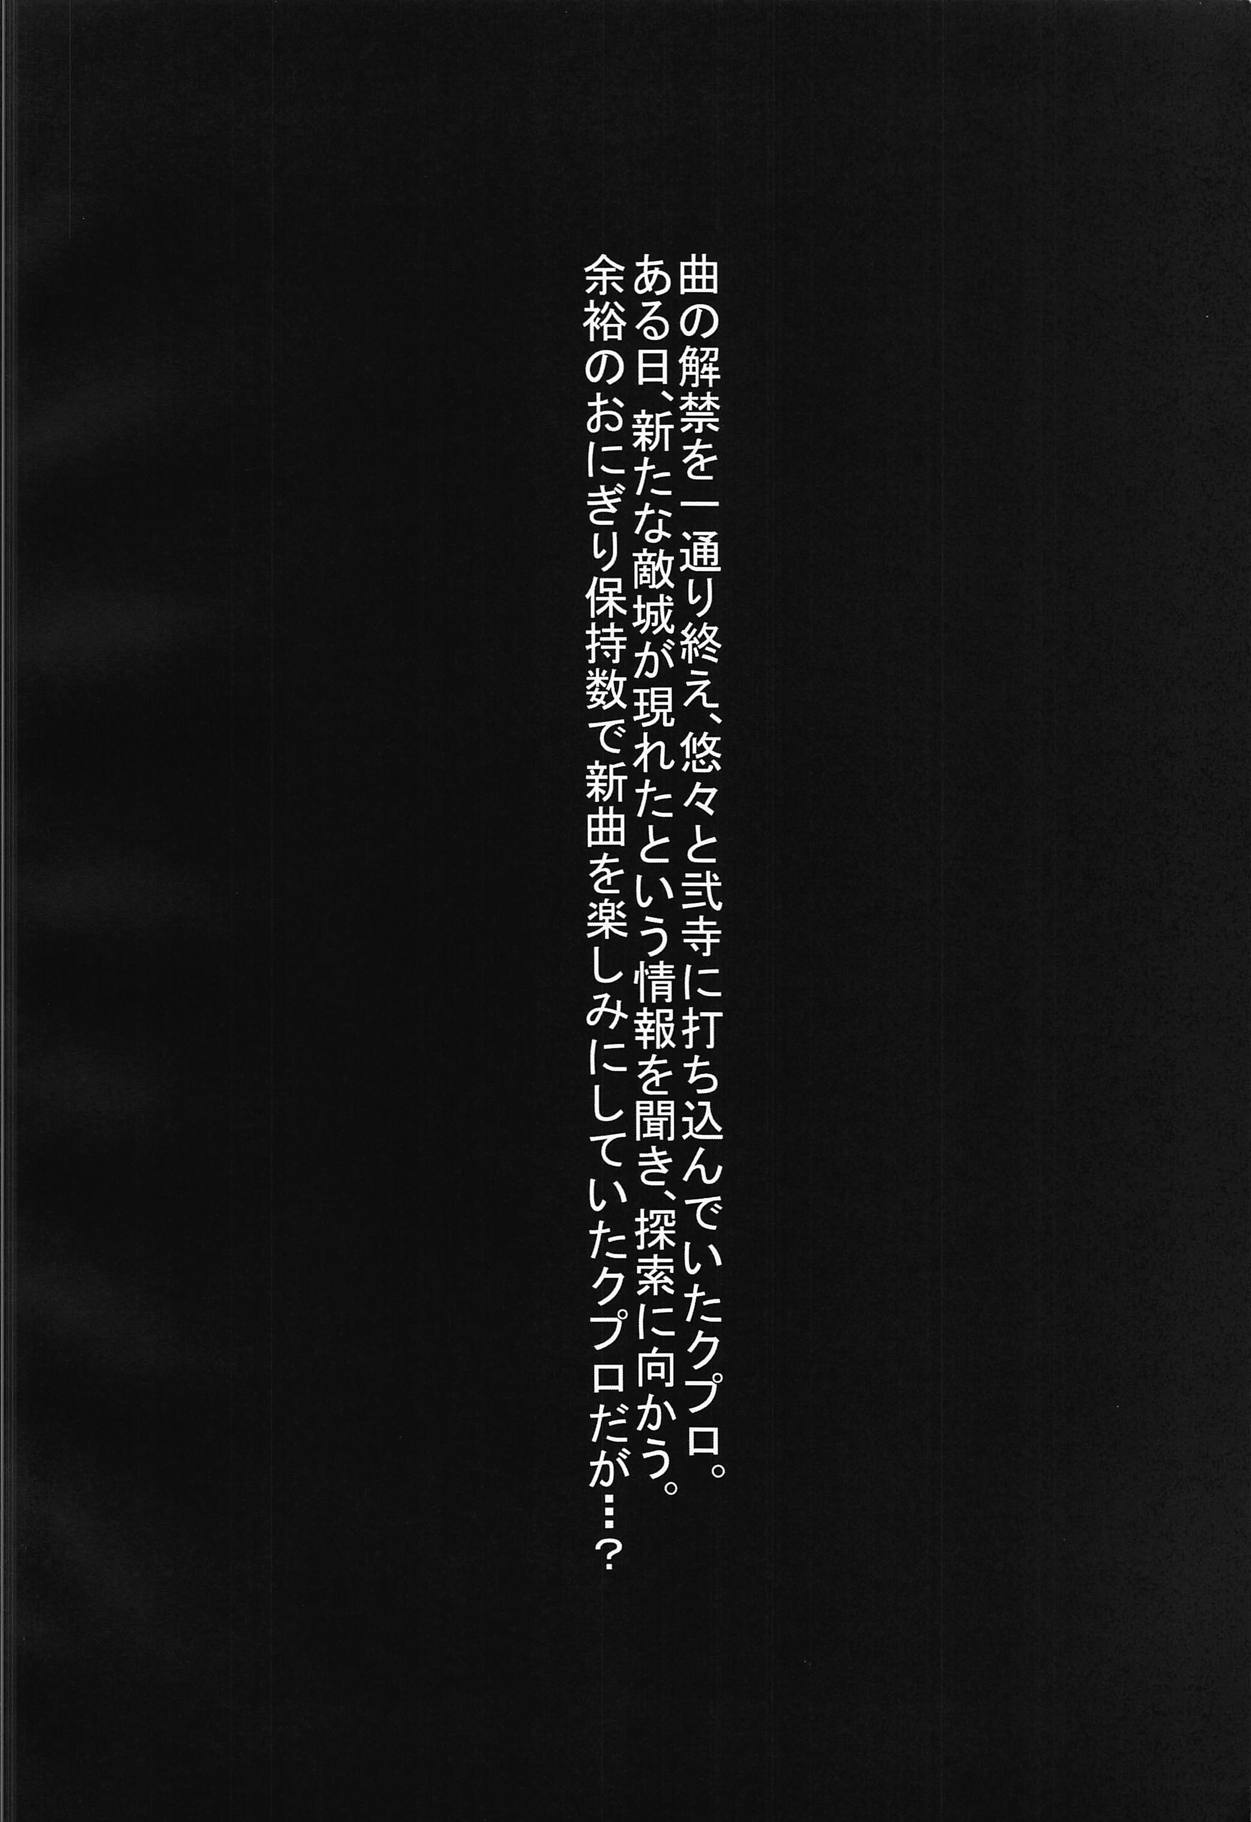 曲の解禁を一通り終え、悠々と弐寺に打ち込んでいたクプロ。
ある日、新たな敵城が現れたという情報を聞き、探索に向かう。
余裕のおにぎり保持数で新曲を楽しみにしていたクプロだが…？